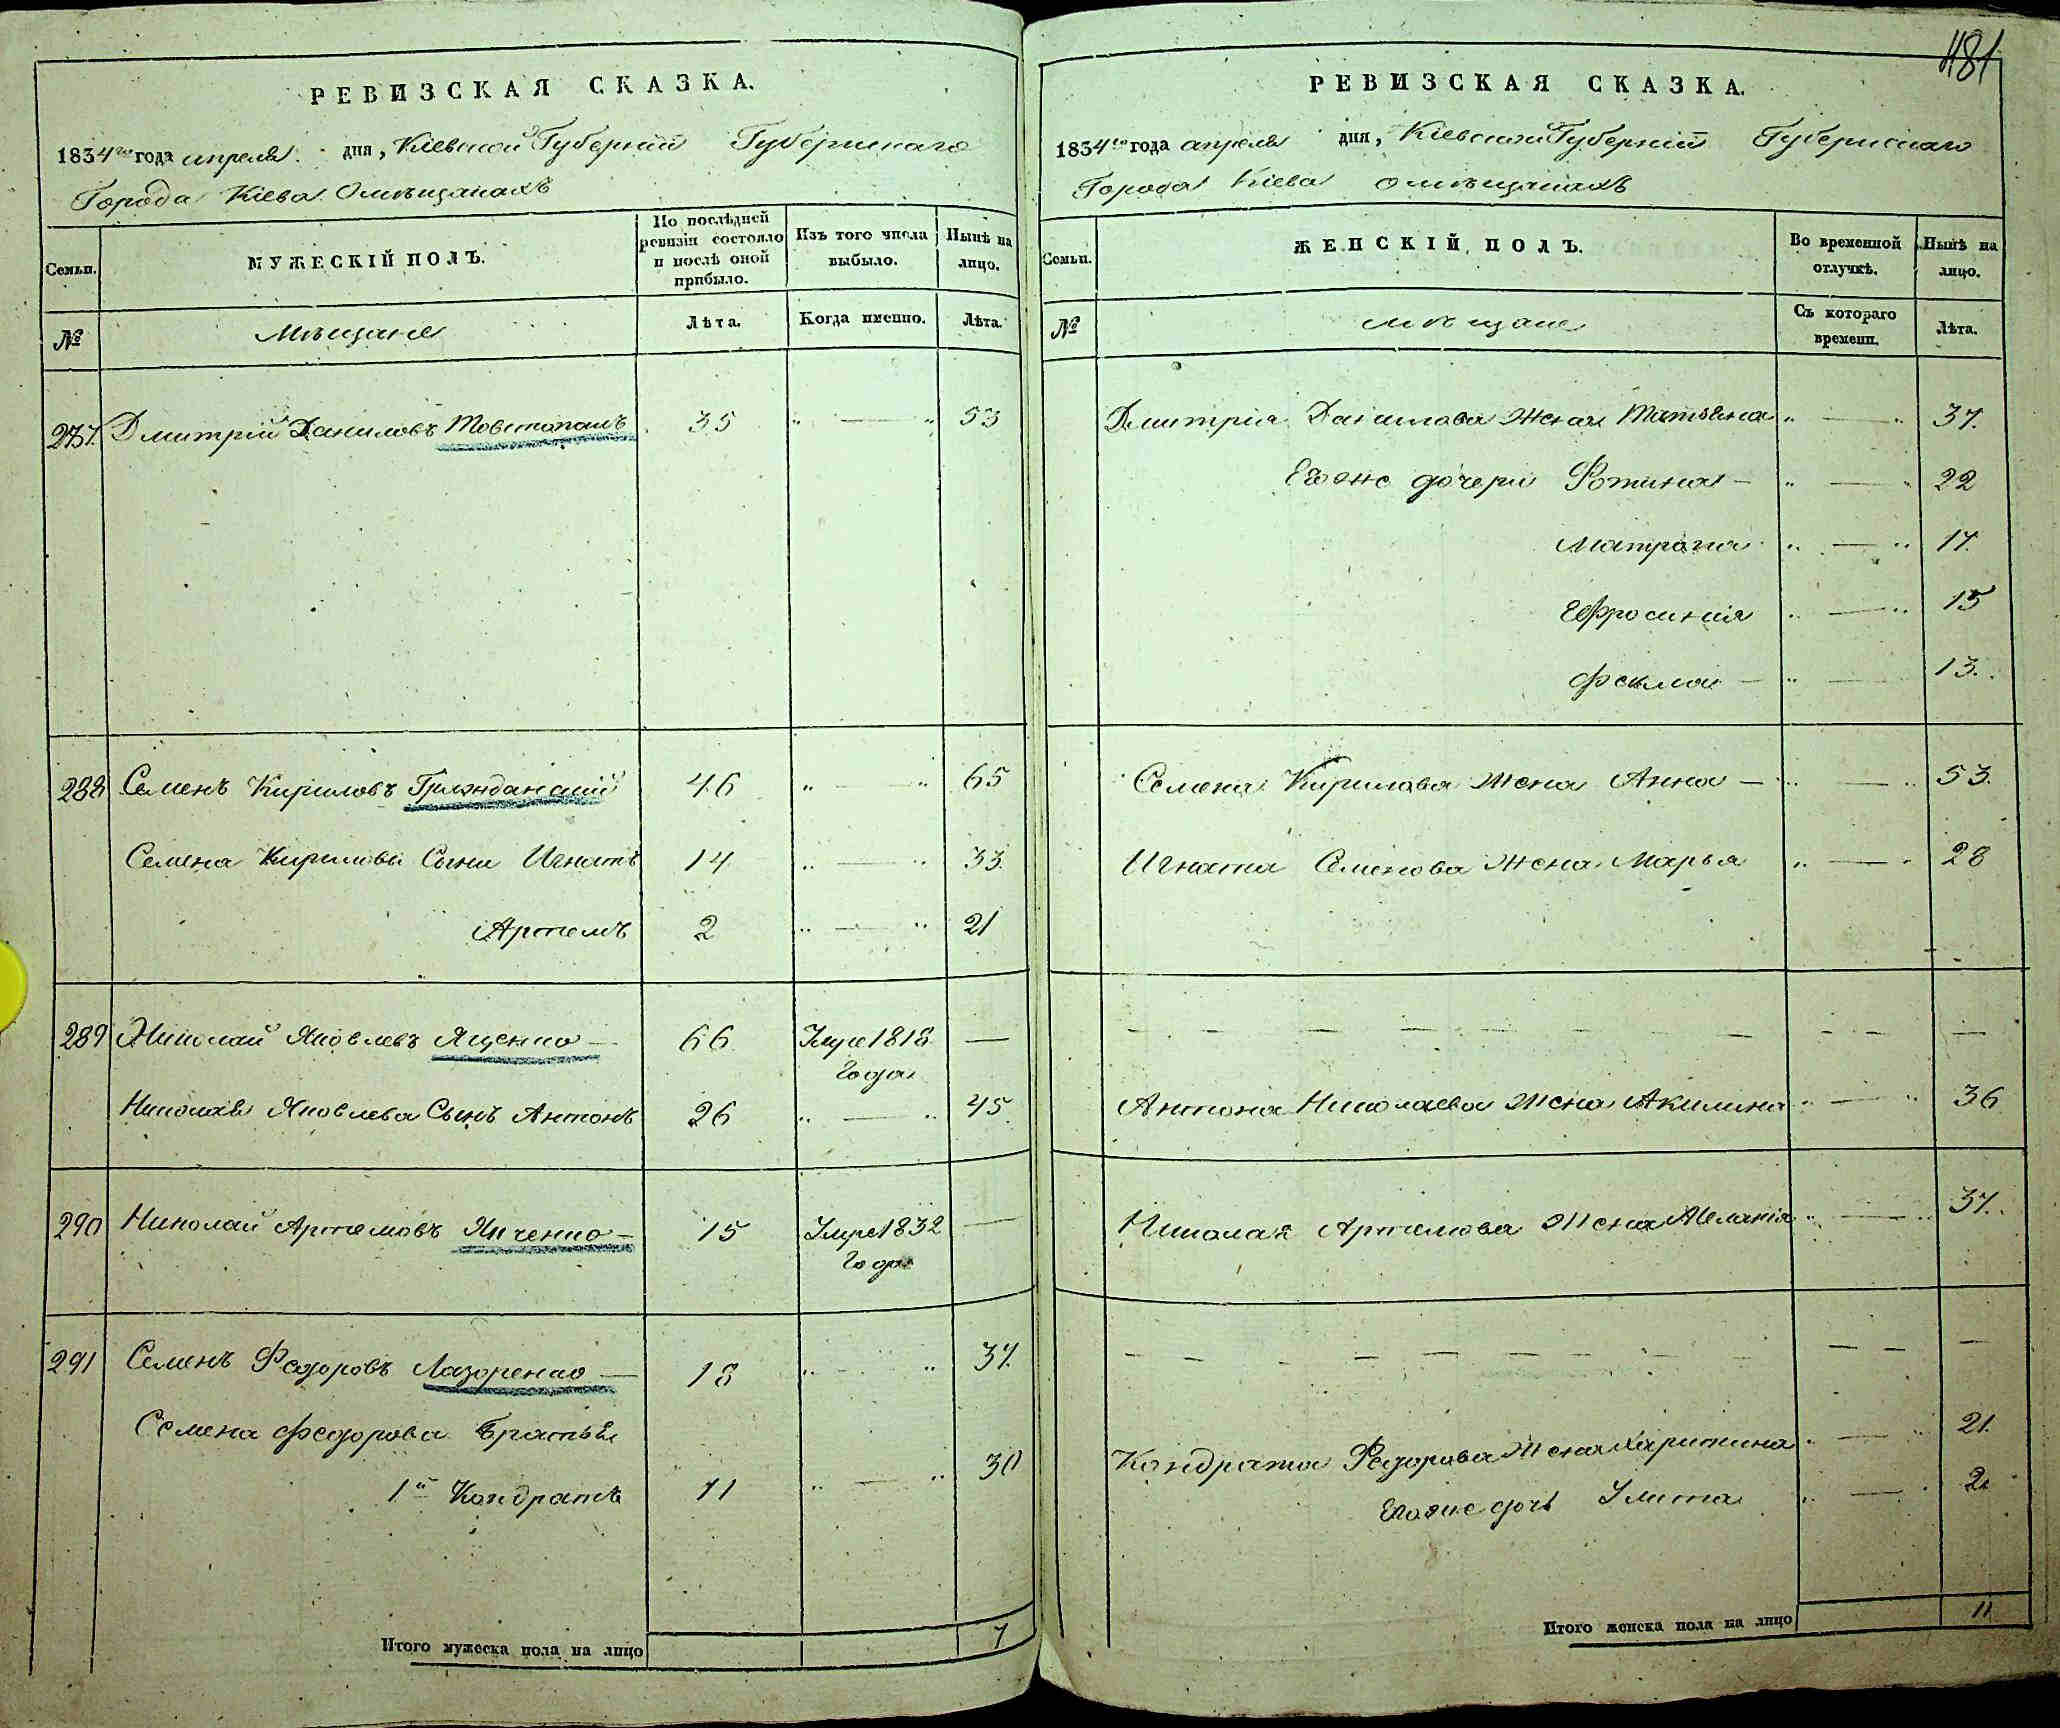 1181
РЕВИЗСКАЯ СКАЗКА.
1834го года апреля дня, Кіевской Губерніи Губернскаго
Города Кіева О мѣщанахъ
Семьи.
МУЖЕСКІЙ ПОЛЪ.
По послѣдней ревизіи состояло и послѣ оной прибыло.
Изъ того числа выбыло.
Нынѣ на лицо.
№
Мѣщане
Лѣта.
Когда именно.
Лѣта.
287 Дмитрій Даниловъ Товстопатъ 35 " — " 53
288 Семенъ Кириловъ Гражданскій 46 " — " 65
Семена Кирилова Сыни Игнатъ 14 " — " 33.
Артемъ 2 " — " 21
289 Николай Яковлевъ Яценко — 66 Умре 1818 Года —
Николая Яковлева Сынъ Антонъ 26 " — " 45
290 Николай Артемовъ Янченко — 15 Умре 1832 Года —
291 Семенъ Федоровъ Лазоренко — 18 " — " 37.
Семена Федорова Братья
1й Кондратъ 11 " — " 30
Итого мужеска пола на лицо 7
РЕВИЗСКАЯ СКАЗКА.
1834го года апреля дня, Кіевской Губерніи Губернскаго
Города Кіева О мѣщанахъ
Семьи.
ЖЕНСКІЙ ПОЛЪ.
Во временной отлучкѣ.
Нынѣ на лицо.
№
мѣщане
Съ котораго времени.
Лѣта.
Дмитрія Данилова Жена Татьяна " — " 37.
Его же дочери Фотина — " — " 22
Матрона " — " 17.
Ефросинія " — " 15
Фекла — " — " 13.
Семена Кирилова Жена Анна — " — " 53.
Игната Семенова Жена Марья " — " 28
Антона Николаева Жена Акилина " — " 36
Николая Артемова Жена Меланія " — " 37.
Кондрата Федорова Жена Харитина " — " 21.
Его же дочь Улита " — " 2.
Итого женска пола на лицо 11